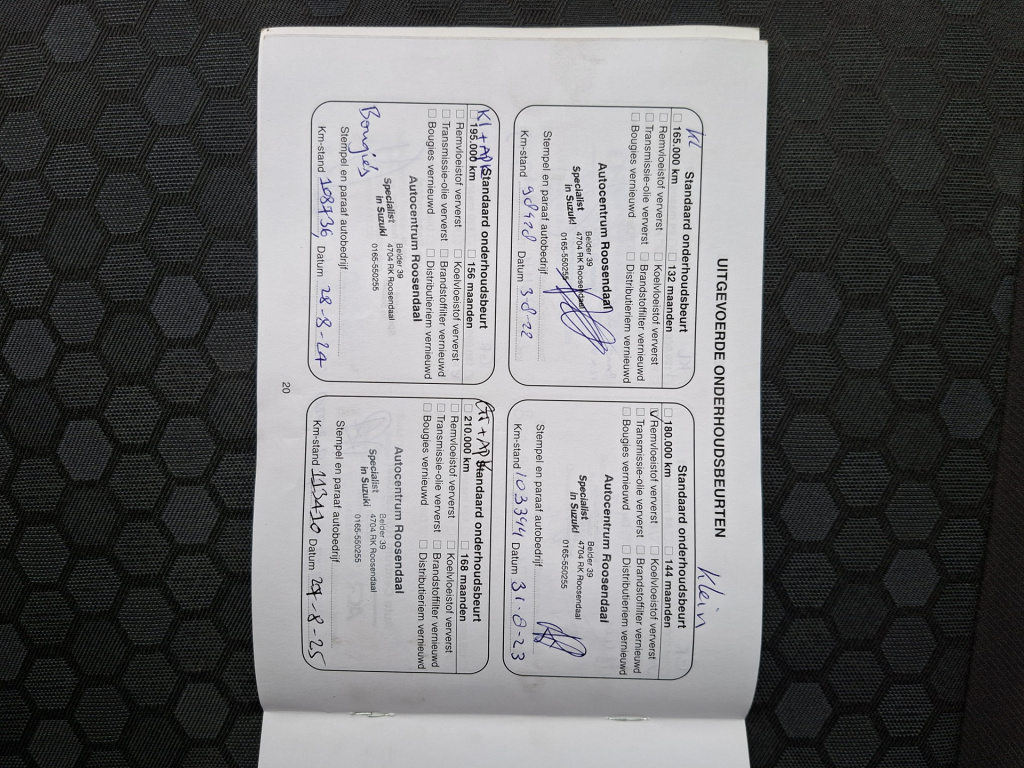 UITGEVOERDE ONDERHOUDSBEURTEN
Kl
Standaard onderhoudsbeurt
☐ 165.000 km ☐ 132 maanden
☐ Remvloeistof ververst ☐ Koelvloeistof ververst
☐ Transmissie-olie ververst ☐ Brandstoffilter vernieuwd
☐ Bougies vernieuwd ☐ Distributieriem vernieuwd
Autocentrum Roosendaal
Specialist in Suzuki
Belder 39
4704 RK Roosendaal
0165-550255
Stempel en paraaf autobedrijf
Km-stand Datum 3-8-22
Klein
Standaard onderhoudsbeurt
☐ 180.000 km ☐ 144 maanden
☑ Remvloeistof ververst ☐ Koelvloeistof ververst
☐ Transmissie-olie ververst ☐ Brandstoffilter vernieuwd
☐ Bougies vernieuwd ☐ Distributieriem vernieuwd
Autocentrum Roosendaal
Specialist in Suzuki
Belder 39
4704 RK Roosendaal
0165-550255
Stempel en paraaf autobedrijf
Km-stand 103394 Datum 31-8-23
Kl + APK
Standaard onderhoudsbeurt
☐ 195.000 km ☐ 156 maanden
☐ Remvloeistof ververst ☐ Koelvloeistof ververst
☐ Transmissie-olie ververst ☐ Brandstoffilter vernieuwd
☐ Bougies vernieuwd ☐ Distributieriem vernieuwd
Autocentrum Roosendaal
Specialist in Suzuki
Belder 39
4704 RK Roosendaal
0165-550255
Bougiés
Stempel en paraaf autobedrijf
Km-stand 108736, Datum 28-8-24
+ APK
Standaard onderhoudsbeurt
☐ 210.000 km ☐ 168 maanden
☐ Remvloeistof ververst ☐ Koelvloeistof ververst
☐ Transmissie-olie ververst ☐ Brandstoffilter vernieuwd
☐ Bougies vernieuwd ☐ Distributieriem vernieuwd
Autocentrum Roosendaal
Specialist in Suzuki
Belder 39
4704 RK Roosendaal
0165-550255
Stempel en paraaf autobedrijf
Km-stand 113410 Datum 29-8-25
20